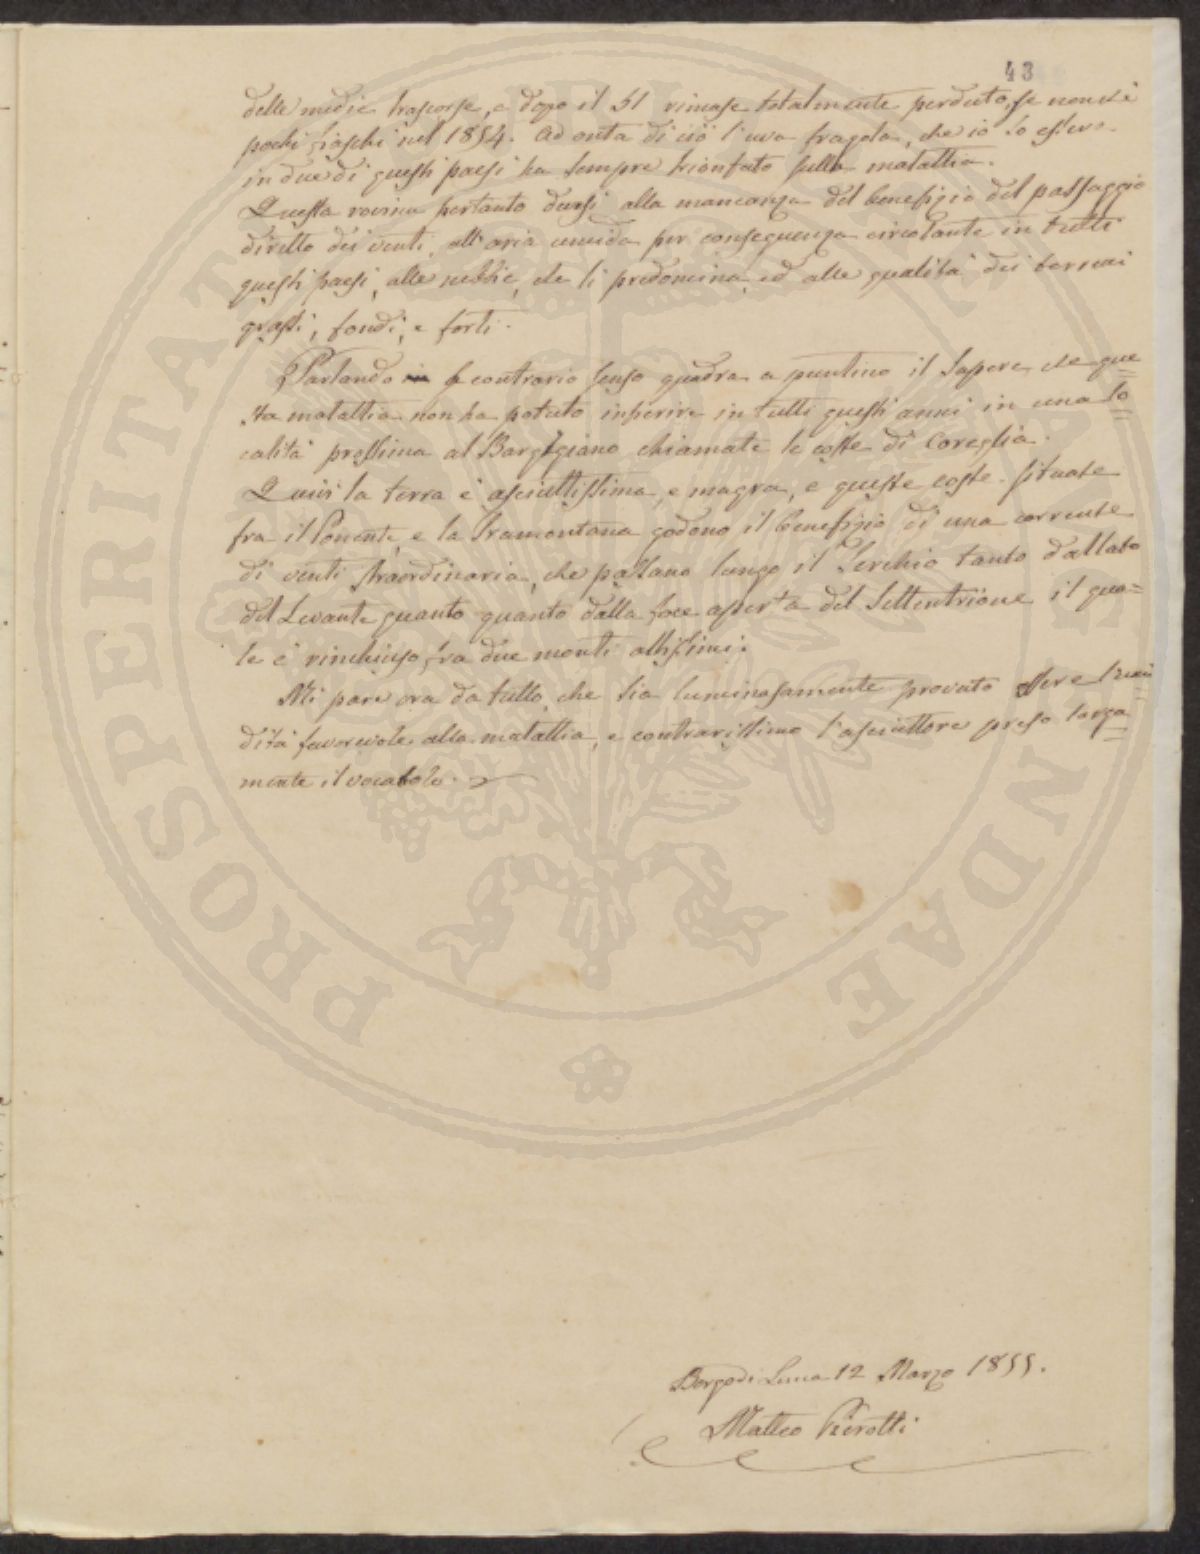 43
delle medie trascorse, e dopo il 51 rimase totalmente perduto, se non che
pochi fiaschi nel 1854. Ad onta di ciò l'uva fragola, che io ho
in due di questi paesi ha sempre trionfato sulla malattia.
Questa rovina pertanto devesi alla mancanza del benefizio del passaggio
diretto dei venti, all'aria umida per conseguenza circolante in tutti
questi paesi, alle nebbie, che li predomina, ed alle qualità dei terreni
grassi, fondi, e forti.
Parlando in contrario senso quadra a puntino il sapere che que
sta malattia non ha potuto inferire in tutti questi anni in una lo=
calità prossima al Bargigiano chiamate le coste di Coreglia.
Quivi la terra è asciuttissima, e magra, e queste coste situate
fra il Ponente, e la Tramontana godono il benefizio di una corrente
di venti straordinaria, che passano lungo il Serchio tanto dallato
del Levante quanto quanto dalla foce aperta del Settentrione il qua=
le è rinchiuso fra due monti altissimi.
Mi pare ora da tutto, che sia luminosamente provato essere l'umi=
dità favorevole alla malattia, e contrarissimo l'asciuttore preso larga=
mente il vocabolo.
Borgo di Lucca 12 Marzo 1855.
Matteo Pierotti
PROSPERITATI AUGENDAE